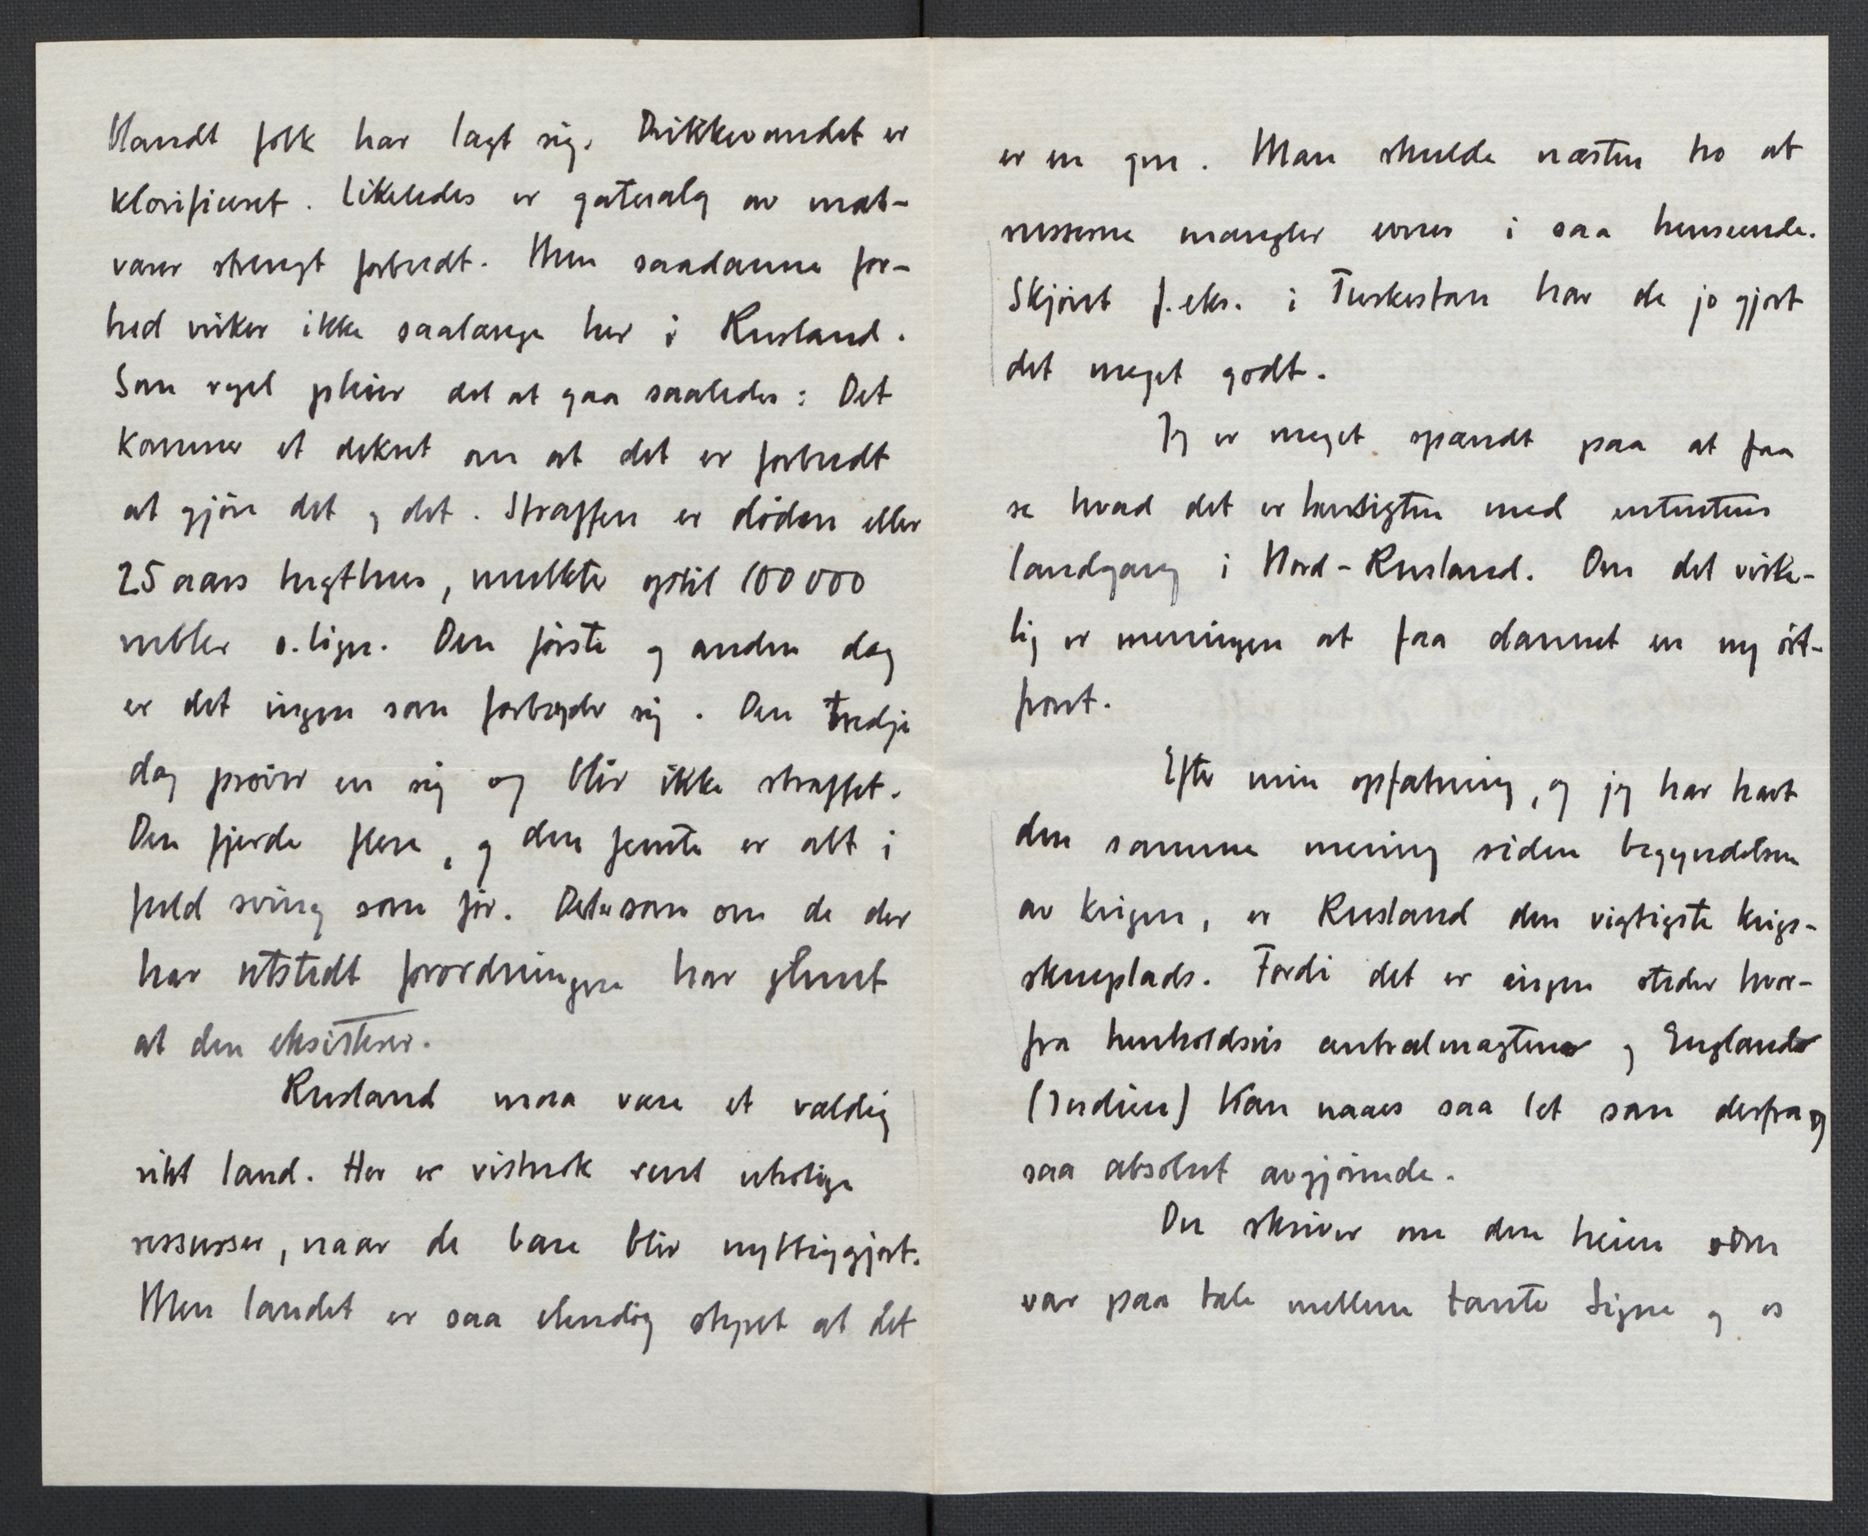 blandt folk har lagt sig. Drikkevandet er
klorificeret. Likeledes er gatesalg av mat-
varer strengt forbudt. Men saadanne for-
bud virker ikke saalænge her i Rusland.
Som regel pleier det at gaa saaledes: Det
kommer et dekret om at det er forbudt
at gjöre det og det. Straffen er döden eller
25 aars tugthus, mulkter optil 100 000
rubler o. lign. Den förste og anden dag
er det ingen som forbryder sig. Den tredje
dag pröver en sig og blir ikke straffet.
Den fjerde flere, og den femte er alt i
fuld sving som för. Det er som om de der
har utstedt forordningen har glemt
at den eksisterer.
Rusland maa være et vældig
rikt land. Her er vistnok rent utrolige
ressurser, naar de bare blir nyttiggjort.
Men landet er saa elendig styret at det
er en gru. Man skulde næsten tro at
russerne mangler evner i saa henseende.
Skjönt f. eks. i Turkestan har de jo gjort
det meget godt.
Jeg er meget spændt paa at faa
se hvad det er hensigten med ententens
landgang i Nord-Rusland. Om det virke-
lig er meningen at faa dannet en ny öst-
front.
Efter min opfatning, og jeg har havt
den samme mening siden begyndelsen
av krigen, er Rusland den vigtigste krigs-
skueplads. Fordi det er ingen steder hvor-
fra henholdsvis centralmagterne og England
(Indien) kan naaes saa let som derfra og
saa absolut avgjörende.
Du skriver om den heien som
var paa tale mellem tante Signe og os